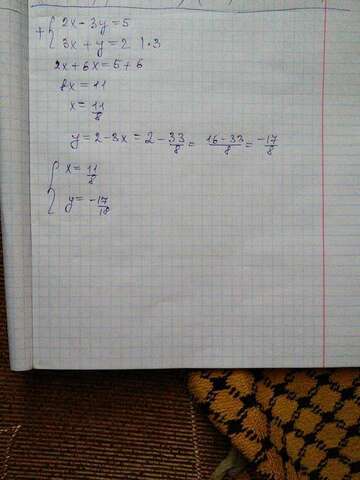 + { 2x - 3y = 5
3x + y = 2 | · 3
2x + 6x = 5 + 6
8x = 11
x = 11/8
y = 2 - 3x = 2 - 33/8 = 16-33/8 = -17/8
{ x = 11/8
y = -17/18